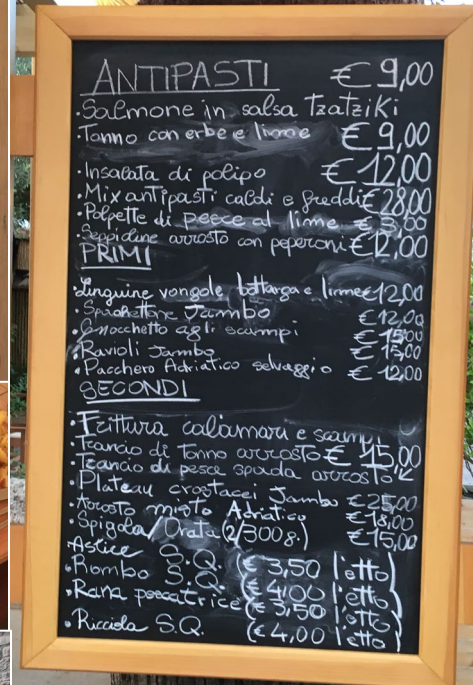 ANTIPASTI € 9,00
• Salmone in salsa tzatziki
• Tonno con erbe e lime € 9,00
• Insalata di polipo € 12,00
• Mix antipasti caldi e freddi € 28,00
• Polpette di pesce al lime €
• Seppioline arrosto con peperoni € 12,00
PRIMI
• Linguine vongole bottarga e lime € 12,00
• Spaghettone Jambo € 12,00
• Gnocchetto agli scampi € 15,00
• Ravioli Jambo € 15,00
• Pacchero Adriatico selvaggio € 12,00
SECONDI
• Frittura calamari e scampi
• Trancio di Tonno arrosto € 15,00
• Trancio di pesce spada arrosto
• Plateau crostacei Jambo € 25,00
• Arrosto misto Adriatico € 18,00
• Spigola/Orata (2/300g.) € 15,00
Astice S.Q.
• Rombo S.Q. (€ 3,50 l'etto)
• Rana pescatrice (€ 4,00 l'etto)
(€ 3,50 l'etto)
• Ricciola S.Q. (€ 4,00 l'etto)